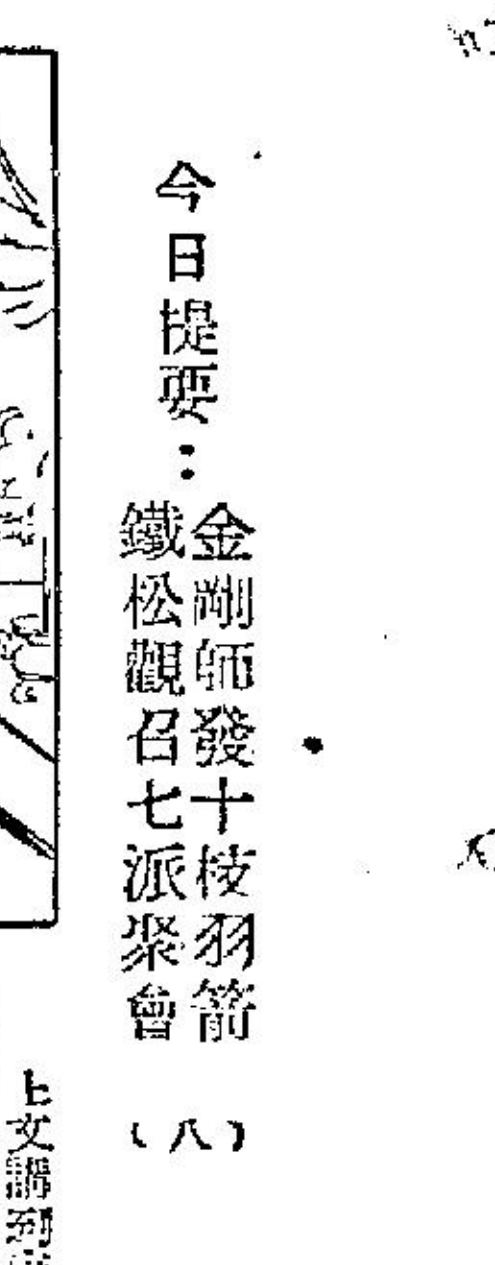 今日提要：
金剛師發十枝羽箭
鐵松觀召七派聚會
（八）
上文講到